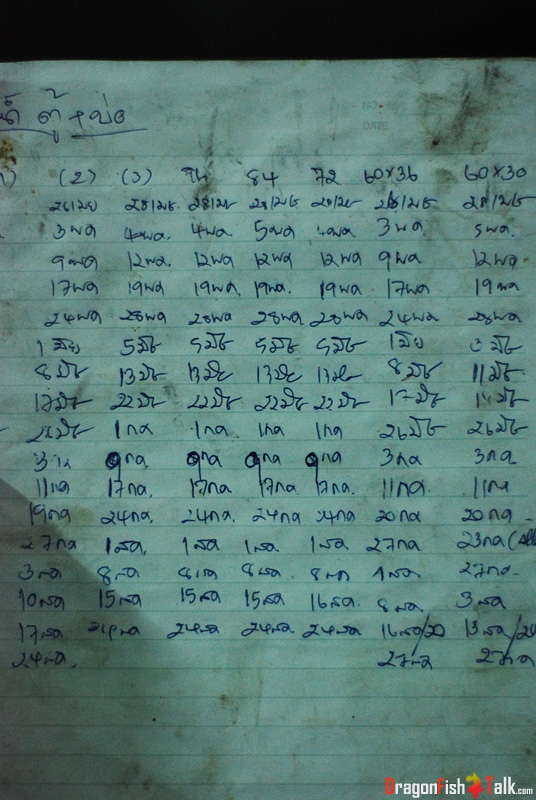 ตู้+บ่อ
(2) (3) 84 72 60x36 60x30
28/มย 28/มย 28/มย 28/มย 28/มย 28/มย
3พค 4พค. 4พค. 5พค 4พค 3พค 5พค.
9พค 12พค. 12พค 12พค 12พค 9พค 12พค
17พค 19พค 19พค. 19พค. 19พค 17พค 19พค
24พค 28พค 28พค 28พค 28พค 24พค 28พค
1มิย 5มิย 5มิย 5มิย 5มิย 1มิย 3มิย
8มิย 13มิย 13มิย 13มิย 13มิย 8มิย 11มิย
17มิย 22มิย 22มิย 22มิย 22มิย 17มิย
26มิย 1กค 1กค. 1กค 1กค 26มิย 26มิย
3กค 9กค 9กค 9กค 9กค 3กค 3กค.
11กค 17กค. 17กค. 17กค 17กค. 11กค. 11กค
19กค 24กค. 24กค. 24กค 24กค 20กค 20กค
27กค 1สค. 1สค 1สค. 1สค 27กค 23กค
3สค 8สค 8สค 8สค. 8สค 1สค 27กค
10สค 15สค 15สค 15สค 16สค. 8สค 3สค
17สค 24สค 24สค 24สค. 24สค 16สค/20 13สค/20
24สค. 27สค 27สค
DragonFishTalk.com